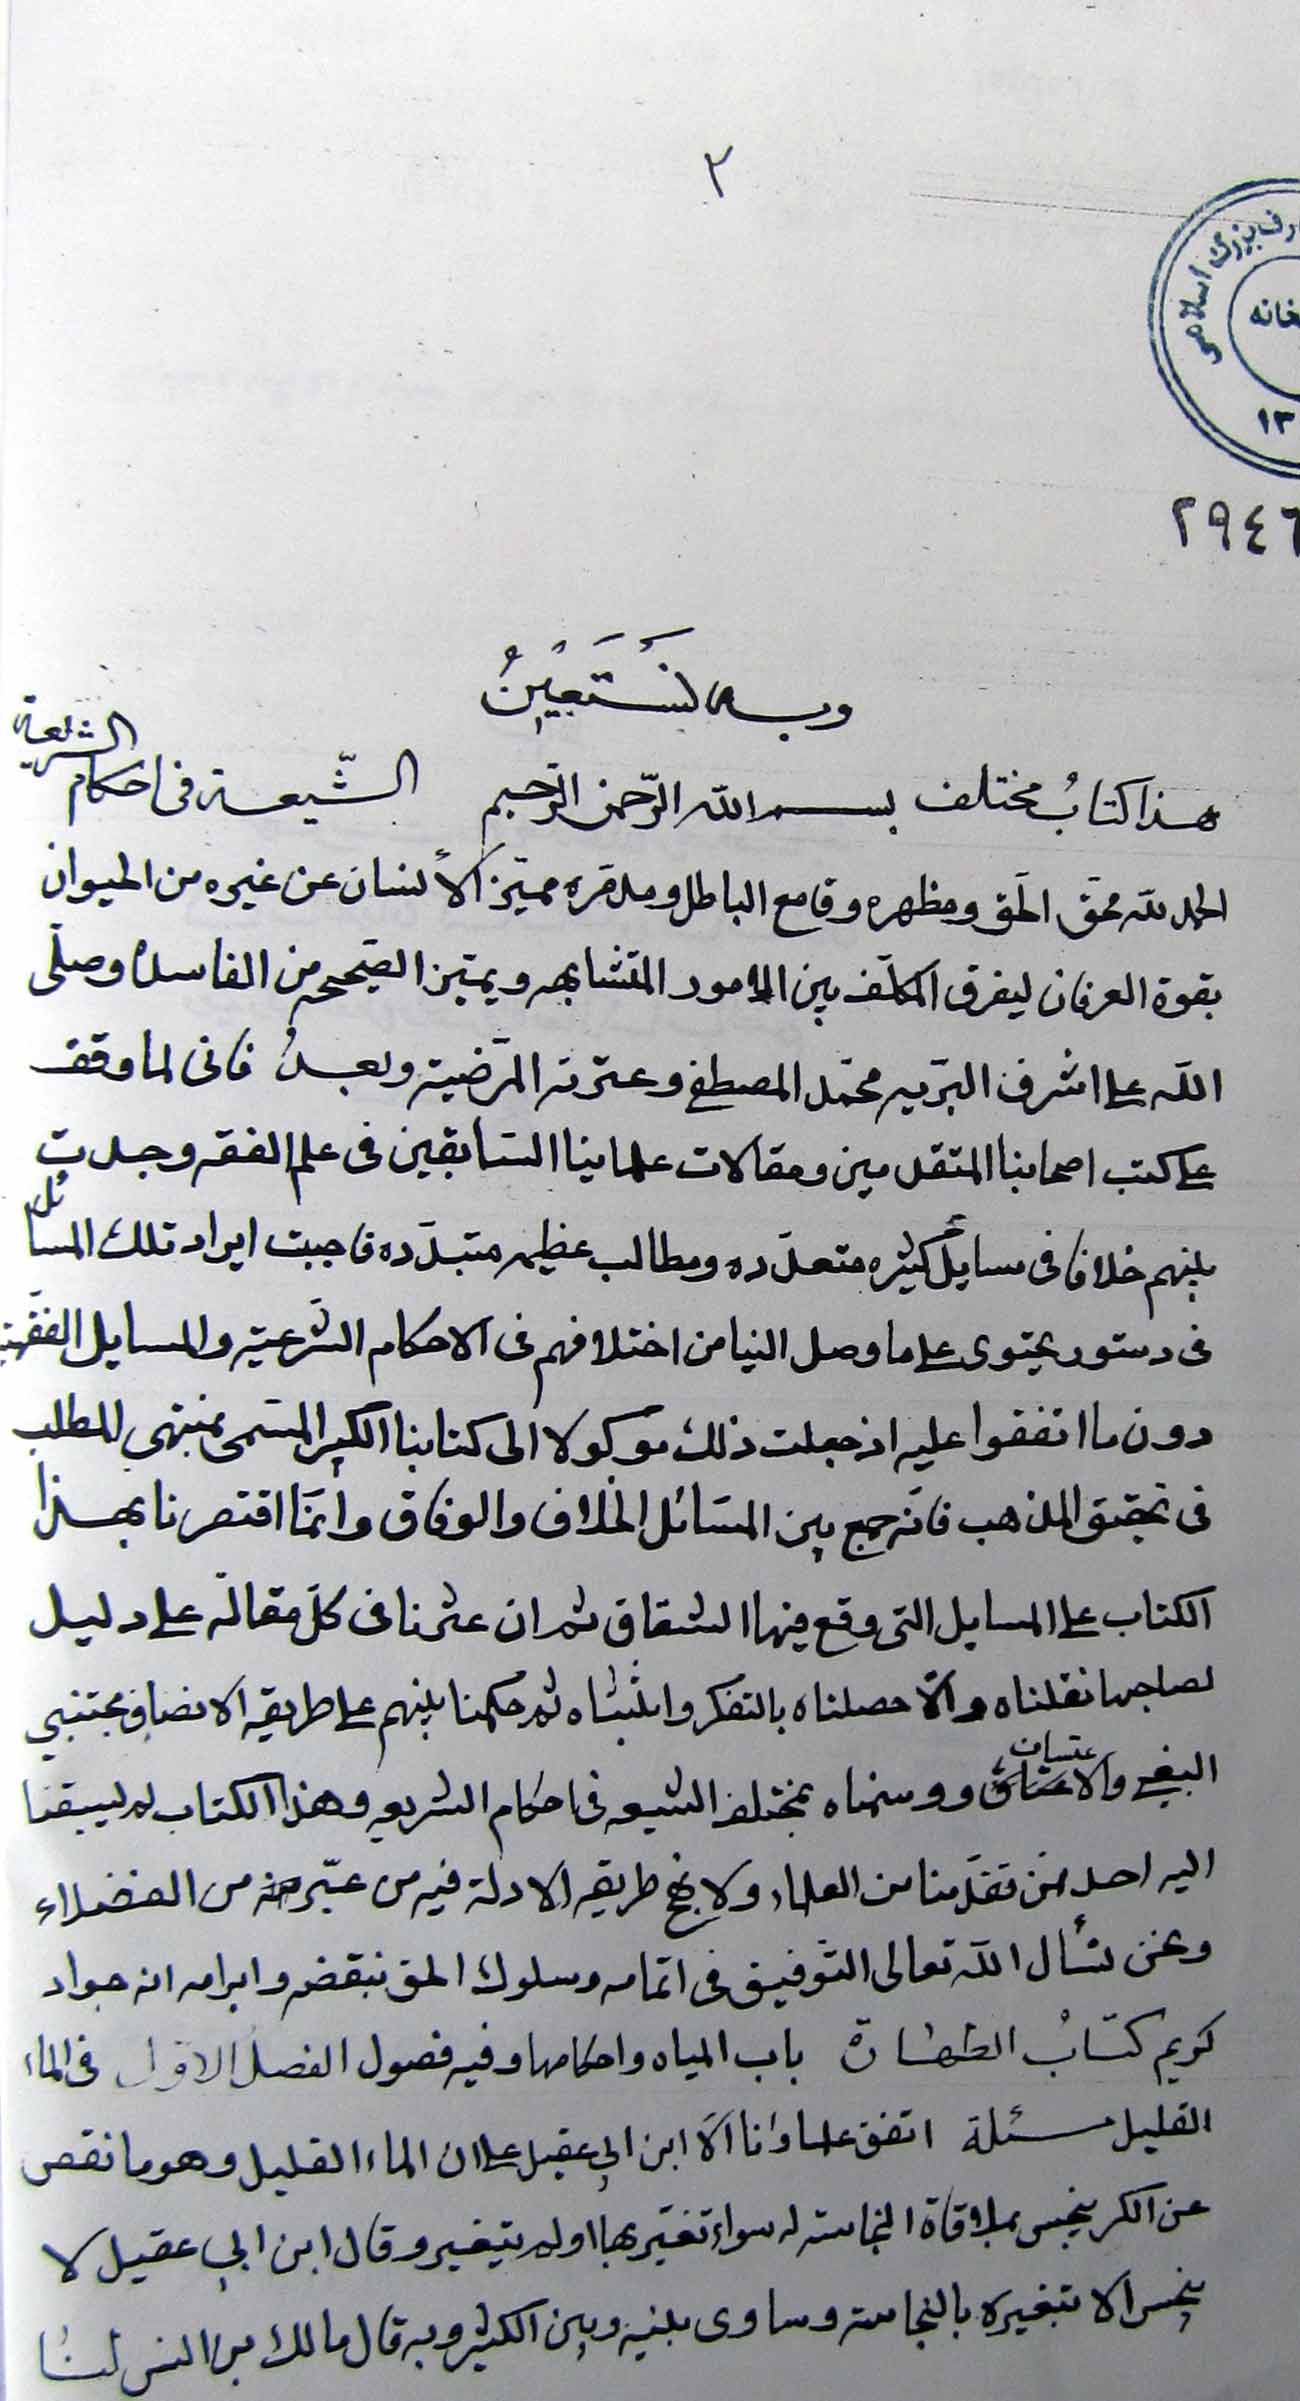 ٢
رف بزرگ اسلامی
خانه
١٣
٢٩٤٦
وبه نَستَعِينُ
هذا كتابُ مختلف بسم الله الرّحمن الرّحيم الشّيعة فى احكام الشريعة
الحمد لله محقّ الحَق ومظهره وقامع الباطل ومدمّره مميّز الأنسان عن غيره من الحيوان
بقوة العرفان ليفرق المكلّف بين الامور المتشابهه ويميّز الصّحيحه من الفاسده وصلّى
اللّه على اشرف البريّه محمّد المصطفى وعترته المرَضية وبعدُ فانى لما وقفت
على كتب اصحابنا المتقدمين ومقالات علماينا السّابقين فى علم الفقه وجدت
بينهم خلافا فى مسايل كثيره متعدّده ومطالب عظيمه متبدّده فاحببت ايراد تلك المسائل
فى دستور يحتوى على ما وصل الينا من اختلافهم فى الاحكام الشّرعيّه والمسايل الفقهية
دون ما اتفقوا عليه اذ جعلت ذلك موكولا الى كتابنا الكبير المسمّى بمنتهى المطلب
فى تحقيق المذهب فانّه جمع بين المسَائل الخلاف والوفاق وانّما اقتصرنا بهذا
الكتاب على المسايل التى وقع فيها الشقاق ثم ان عثرنا فى كلّ مقالة على دليل
لصاحبها نقلناه والّا حصلناه بالتفكر وامثبتاه ثم حكمنا بينهم على طريقه الانصاف مجتنبي
البغي والاعتساف ووسمناه بمختلف الشيعه فى احكام الشريعه وهذا الكتاب لم يسبقنا
اليه احد ممّن تقدّمنا من العلماء ولا نهج طريقه الادلة فيه من عبّر من الفضلاء
ونحن نسأل اللّه تعالى التّوفيق فى اتمامه وسلوك الحق بنقضه وابرامه انه جواد
كريم كتابُ الطهارة باب المياه واحكامها وفيه فصول الفصلُ الاوّل فى الماء
القليل مسئلة اتفق علماؤنا الّا ابن ابي عقيل على ان الماء القليل وهو ما نقص
عن الكر ينجس بملاقاة النجاسه له سواء تغيّر بها اولم يتغير وقال ابن ابي عقيل لا
ينجس الا بتغيره بالنجاسه وساوى بينه وبين الكثير وبه قال مالك بن انس لنا